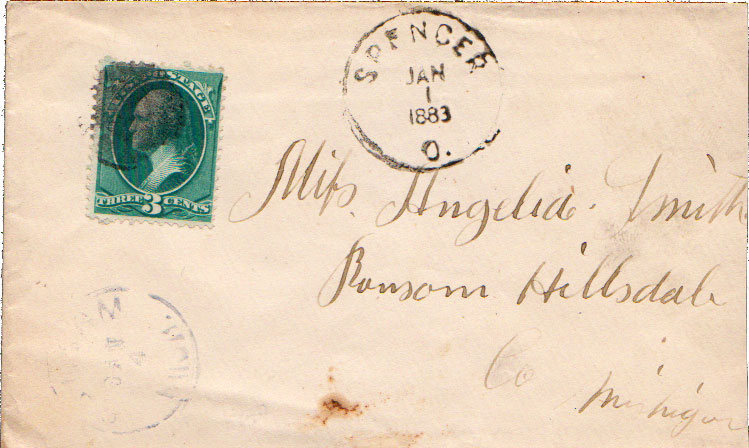 SPENCER
JAN
1
1883
O.
POSTAGE
THREE 3 CENTS
Miss. Angelia Smith
Ransom Hillsdale
Co Michigan
MICH.